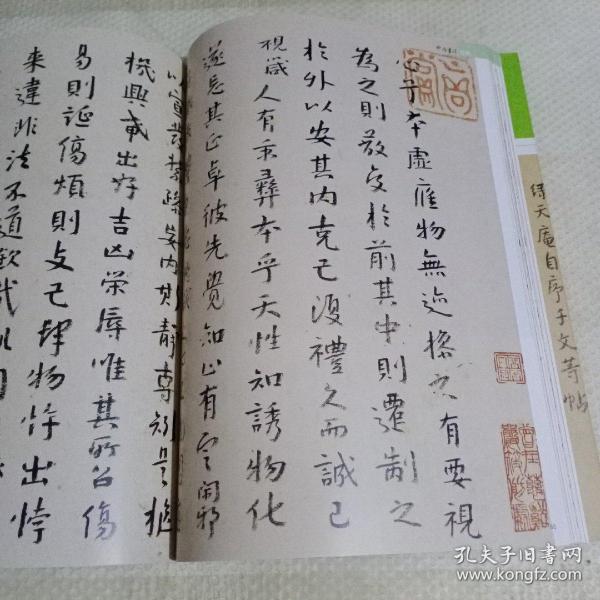 心兮本虛應物無迹操之有要視
為之則蔽交於前其中則遷制之
於外以安其内克己復禮久而誠已
視箴人有秉彝本乎天性知誘物化
遂忘其正卓彼先覺知止有定閑邪
以宣發禁躁妄内其静專矧是樞
機興戎出好吉凶榮辱唯其所召傷
易則誕傷煩則支己肆物忤出悖
来違非法不道欽哉訓
绿天庵自序千文等帖
孔夫子旧书网
www.kongfz.com